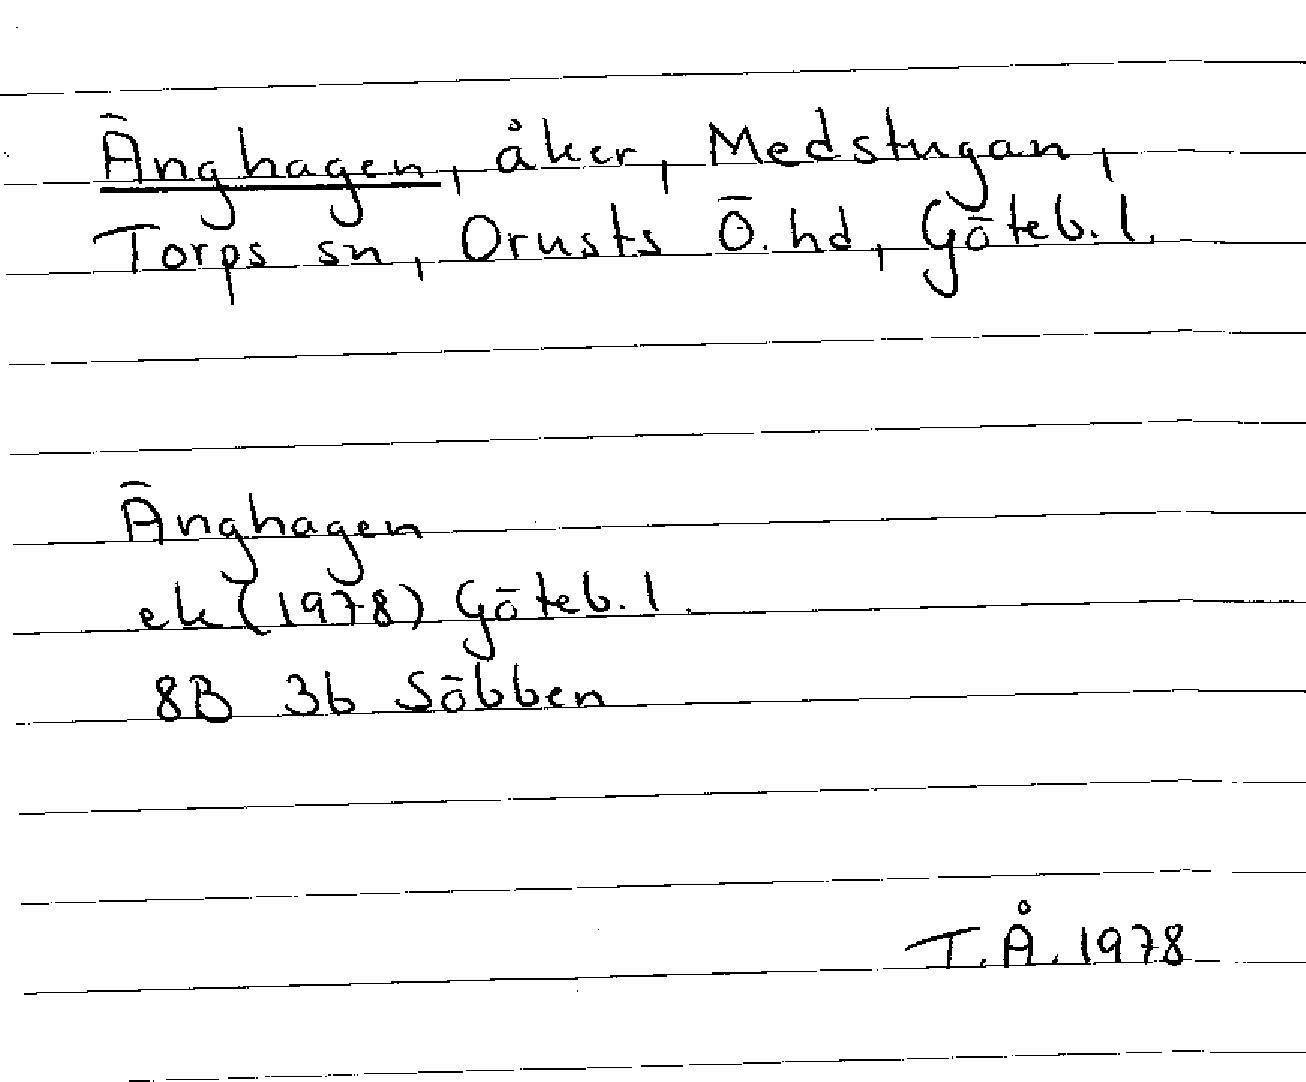 Änghagen, åker, Medstugan,
Torps sn, Orusts Ö. hd, Göteb. l.
Änghagen
ek (1978) Göteb. l.
8B 3b Söbben
T. Å. 1978